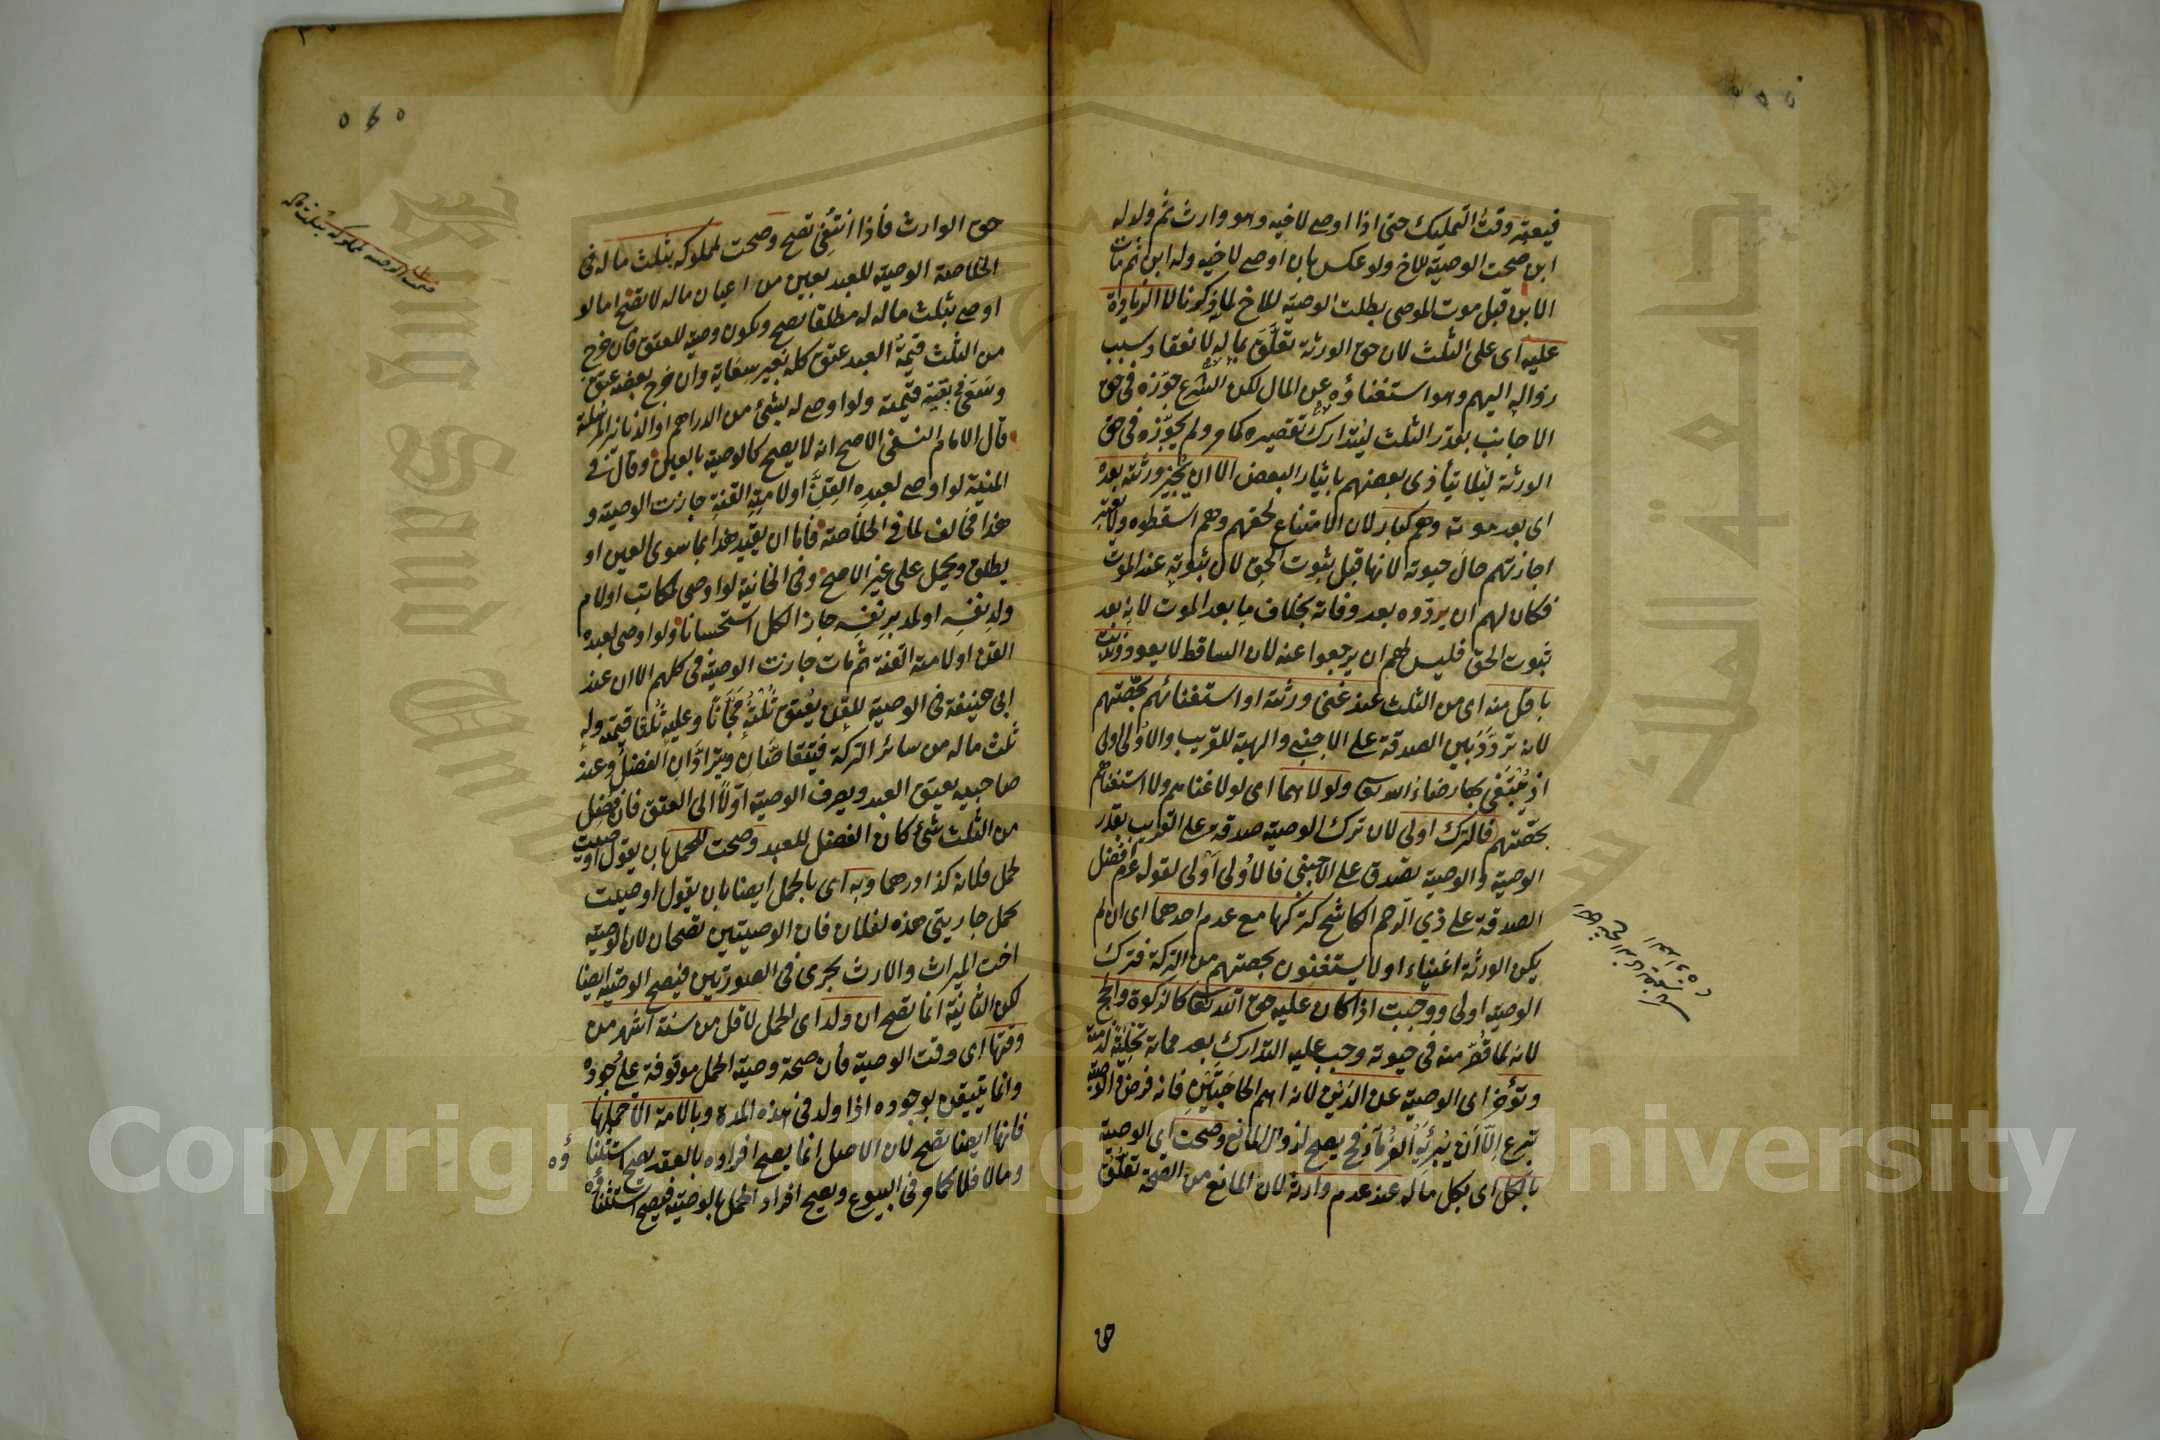 فيعتبر وقت التمليك حتى اذا اوصى لاخيه وهو وارث ثم ولد له
ابن صحت الوصية للاخ ولو عكس بان اوصى لاخيه وله ابن ثم مات
الابن قبل موت الموصى بطلت الوصية للاخ لما ذكرنا لا الزيادة
عليه اى على الثلث لان حق الورثة تعلق بماله لانعقاد سبب
زواله اليهم وهو استغناؤه عن المال لكن الشرع جوزه فى حق
الاجانب بقدر الثلث ليتدارك تقصيره كما مر ولم يجوزه فى حق
الورثة لئلا يتأذى بعضهم بايثار البعض الا ان يجيز ورثته بعده
اى بعد موته وهم كبار لان الامتناع لحقهم وهم اسقطوه ولا يعتبر
اجازتهم حال حيوته لانها قبل ثبوت الحق لان ثبوته عند الموت
فكان لهم ان يردوه بعد وفاته بخلاف ما بعد الموت لانه بعد
ثبوت الحق فليس لهم ان يرجعوا عنه لان الساقط لا يعود وندبت
باقل منه اى من الثلث عند غنى ورثته او استغنائهم بحصتهم
لانه تردد بين الصدقة على الاجنبى والهبة للقريب والاولى اولى
اذ يبتغى بها رضاء الله تعالى ولولاهما اى لولا غناهم ولا استغناهم
بحصتهم فالترك اولى لان ترك الوصية صدقة على القريب بقدر
الوصية والوصية تصدق على الاجنبى فالاولى اولى لقوله عم افضل
الصدقة على ذي الرحم الكاشح كتركها مع عدم احدهما اى ان لم
يكن الورثة اغنياء او لا يستغنون بحصتهم من التركة فترك
الوصية اولى ووجبت اذا كان عليه حق الله تعالى كالزكوة والحج
لانه لما قصر منه فى حيوته وجب عليه التدارك بعد مماته تخلية لذمته
وتؤخر اى الوصية عن الدين لانه اهم الحاجتين فانه فرض والوصية
تبرع الا ان يبرئه الغرماء فح يصح لزوال المانع وصحت اى الوصية
بالكل اى بكل ماله عند عدم وارثه لان المانع من الصحة تعلق
حق
حق الوارث فاذا انتفى تصح وصحت لمملوكه بثلث ماله فى
الخلاصة الوصية للعبد بعين من اعيان ماله لا تصح اما لو
اوصى بثلث ماله له مطلقا يصح ويكون وصية للعتق فان خرج
من الثلث قيمة العبد عتق كله بغير سعاية وان خرج بعضه عتق
وسعى فى بقية قيمته ولو اوصى له بشئ من الدراهم او الدنانير المرسلة
قال الامام النسفى الاصح انه لا يصح كالوصية بالعين وقال فى
المنية لو اوصى لعبده القن او لامته القنة جازت الوصية و
هذا مخالف لما فى الخلاصة فاما ان يقيد هذا بما سوى العين او
يطلق ويحمل على غير الاصح وفى الخانية لو اوصى لمكاتب او لام
ولد نفسه او لمدبر نفسه جاز الكل استحسانا ولو اوصى لعبده
القن او لامته القنة ثم مات جازت الوصية فى كلهم الا ان عند
ابى حنيفة فى الوصية للقن يعتق ثلثه مجانا وعليه ثلثا قيمته وله
ثلث ماله من سائر التركة فيتقاصان ويترادان الفضل وعند
صاحبيه يعتق العبد ويصرف الوصية اولا الى العتق فان فضل
من الثلث شئ كان الفضل للعبد وصحت للحمل بان يقول اوصيت
لحمل فلانة كذا درهما وبه اى بالحمل ايضا بان يقول اوصيت
بحمل جاريتى هذه لفلان فان الوصيتين تصحان لان الوصية
اخت الميراث والارث يجرى فى الصورتين فيصح الوصية ايضا
لكن الثانية انما تصح ان ولد اى الحمل لاقل من ستة اشهر من
وقتها اى وقت الوصية فان صحة وصية الحمل موقوفة على وجوده
وانما يتيقن بوجوده اذا ولد فى هذه المدة وبالامة الا حملها
فانها ايضا تصح لان الاصل انما يصح افراده بالعقد يصح استثناؤه
وما لا فلا كما مر فى البيوع ويصح افراد الحمل بالوصية فيصح استثناؤه
Copyright © King Saud University
King Saud University